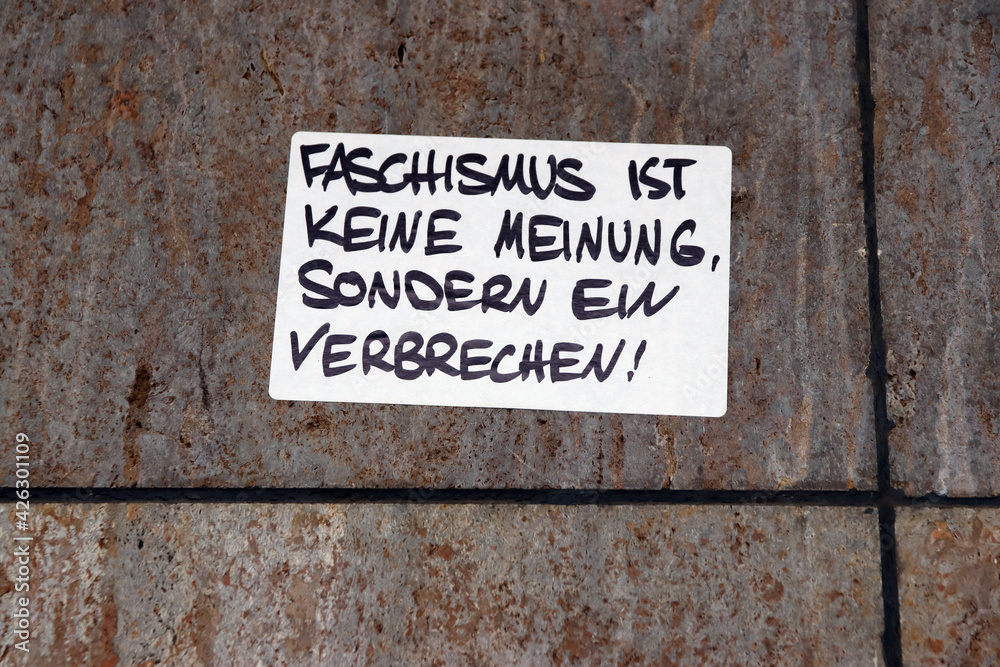 FASCHISMUS IST
KEINE MEINUNG,
SONDERN EIN
VERBRECHEN!
Adobe Stock | #426301109